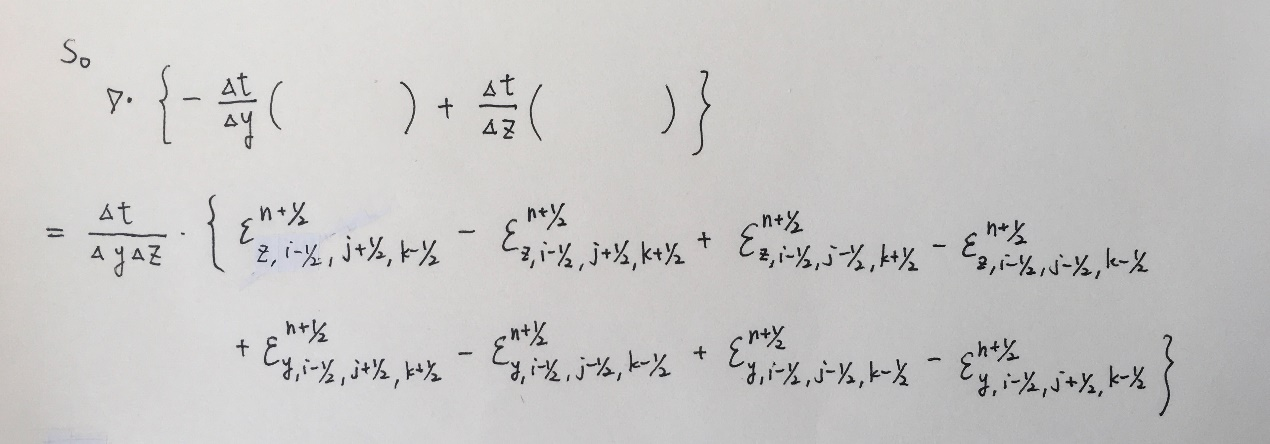 So
∇· { − Δt/Δy ( ) + Δt/Δz ( ) }
= Δt/ΔyΔz · { ε^{n+1/2}_{z, i-1/2, j+1/2, k-1/2} − ε^{n+1/2}_{z, i-1/2, j+1/2, k+1/2} + ε^{n+1/2}_{z, i-1/2, j-1/2, k+1/2} − ε^{n+1/2}_{z, i-1/2, j-1/2, k-1/2}
+ ε^{n+1/2}_{y, i-1/2, j+1/2, k+1/2} − ε^{n+1/2}_{y, i-1/2, j-1/2, k-1/2} + ε^{n+1/2}_{y, i-1/2, j-1/2, k-1/2} − ε^{n+1/2}_{y, i-1/2, j+1/2, k-1/2} }